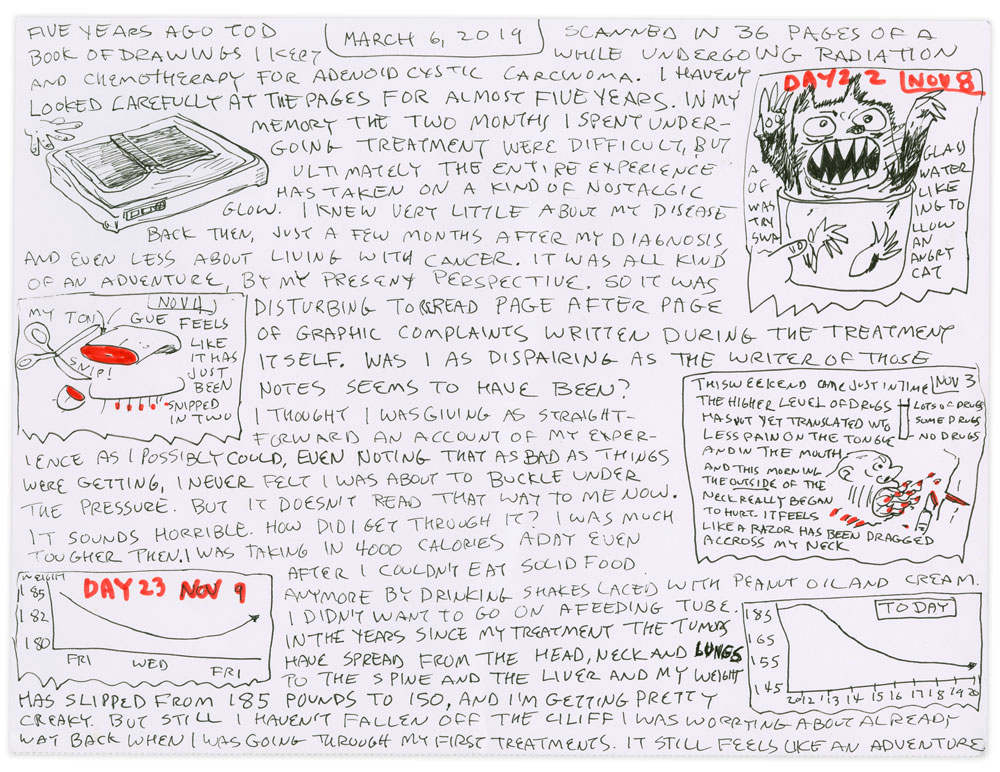 MARCH 6, 2019
FIVE YEARS AGO TOD SCANNED IN 36 PAGES OF A
BOOK OF DRAWINGS I KEPT WHILE UNDERGOING RADIATION
AND CHEMOTHERAPY FOR ADENOID CYSTIC CARCINOMA. I HAVEN'T
LOOKED CAREFULLY AT THE PAGES FOR ALMOST FIVE YEARS. IN MY
MEMORY THE TWO MONTHS I SPENT UNDER-
GOING TREATMENT WERE DIFFICULT, BUT
ULTIMATELY THE ENTIRE EXPERIENCE
HAS TAKEN ON A KIND OF NOSTALGIC
GLOW. I KNEW VERY LITTLE ABOUT MY DISEASE
BACK THEN, JUST A FEW MONTHS AFTER MY DIAGNOSIS
AND EVEN LESS ABOUT LIVING WITH CANCER. IT WAS ALL KIND
OF AN ADVENTURE, BY MY PRESENT PERSPECTIVE. SO IT WAS
DISTURBING TO READ PAGE AFTER PAGE
OF GRAPHIC COMPLAINTS WRITTEN DURING THE TREATMENT
ITSELF. WAS I AS DISPAIRING AS THE WRITER OF THOSE
NOTES SEEMS TO HAVE BEEN?
I THOUGHT I WAS GIVING AS STRAIGHT-
FORWARD AN ACCOUNT OF MY EXPER-
IENCE AS I POSSIBLY COULD, EVEN NOTING THAT AS BAD AS THINGS
WERE GETTING, I NEVER FELT I WAS ABOUT TO BUCKLE UNDER
THE PRESSURE. BUT IT DOESN'T READ THAT WAY TO ME NOW.
IT SOUNDS HORRIBLE. HOW DID I GET THROUGH IT? I WAS MUCH
TOUGHER THEN. I WAS TAKING IN 4000 CALORIES A DAY EVEN
AFTER I COULDN'T EAT SOLID FOOD
ANYMORE BY DRINKING SHAKES LACED WITH PEANUT OIL AND CREAM.
I DIDN'T WANT TO GO ON A FEEDING TUBE.
IN THE YEARS SINCE MY TREATMENT THE TUMORS
HAVE SPREAD FROM THE HEAD, NECK AND LUNGS
TO THE SPINE AND THE LIVER AND MY WEIGHT
HAS SLIPPED FROM 185 POUNDS TO 150, AND I'M GETTING PRETTY
CREAKY. BUT STILL I HAVEN'T FALLEN OFF THE CLIFF I WAS WORRYING ABOUT ALREADY
WAY BACK WHEN I WAS GOING THROUGH MY FIRST TREATMENTS. IT STILL FEELS LIKE AN ADVENTURE
DAY 22 NOV 8
A GLASS
OF WATER
WAS LIKE
TRYING TO
SWALLOW
AN
ANGRY
CAT
NOV 4
MY TONGUE FEELS
LIKE
IT HAS
JUST
BEEN
SNIPPED
IN TWO
SNIP!
NOV 3
THIS WEEKEND CAME JUST IN TIME
THE HIGHER LEVEL OF DRUGS
HAS NOT YET TRANSLATED INTO
LESS PAIN ON THE TONGUE
AND IN THE MOUTH
AND THIS MORNING
THE OUTSIDE OF THE
NECK REALLY BEGAN
TO HURT. IT FEELS
LIKE A RAZOR HAS BEEN DRAGGED
ACCROSS MY NECK
LOTS OF DRUGS
SOME DRUGS
NO DRUGS
WEIGHT
DAY 23 NOV 9
185
182
180
FRI WED FRI
TODAY
185
165
155
145
2012 '13 14 15 16 17 18 19 20